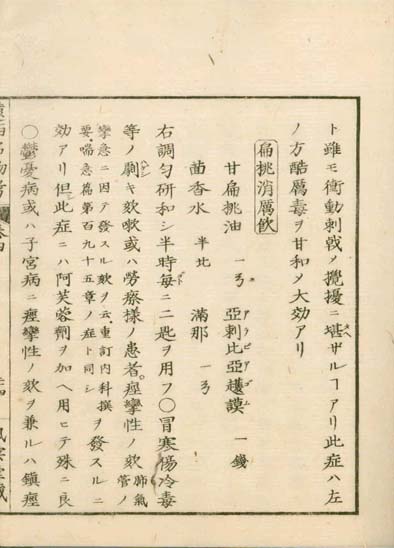 ト雖モ衝動刺戟ノ攪擾ニ堪ザルヿアリ此症ハ左
ノ方酷厲毒ヲ甘和メ大効アリ
扁桃消厲飲
甘扁桃油 亞剌比亞護謨 一錢
アラビアゴム
茴香水 半比 満那
右調匀研和シ半時毎ニ二匙ヲ用フ○冒寒傷冷毒
等ノ劇キ欬嗽或ハ勞瘵様ノ患者。痙攣性ノ欬 肺氣管ノ
攣急ニ因テ發スル欬ヲ云重訂内科撰
要喘急篇第百九十五章ノ症ト同シ ヲ發スルニ
効アリ但此症ニハ阿芙蓉劑ヲ加ヘ用ヒテ殊ニ良
○鬱憂病或ハ子宮病ニ痙攣性ノ欬ヲ兼ルハ鎮痙